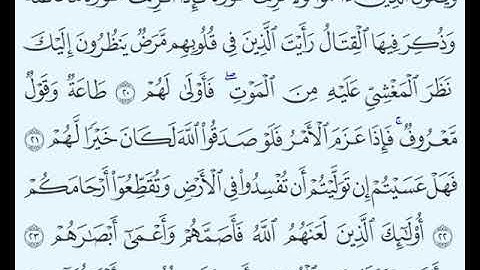 وَذُكِرَ فِيهَا ٱلْقِتَالُ رَأَيْتَ ٱلَّذِينَ فِي قُلُوبِهِم مَّرَضٌ يَنظُرُونَ إِلَيْكَ
نَظَرَ ٱلْمَغْشِيِّ عَلَيْهِ مِنَ ٱلْمَوْتِۖ فَأَوْلَىٰ لَهُمْ ٢٠ طَاعَةٌ وَقَوْلٌ
مَّعْرُوفٌۚ فَإِذَا عَزَمَ ٱلْأَمْرُ فَلَوْ صَدَقُوا۟ ٱللَّهَ لَكَانَ خَيْرًا لَّهُمْ ٢١
فَهَلْ عَسَيْتُمْ إِن تَوَلَّيْتُمْ أَن تُفْسِدُوا۟ فِي ٱلْأَرْضِ وَتُقَطِّعُوٓا۟ أَرْحَامَكُمْ
٢٢ أُو۟لَٰٓئِكَ ٱلَّذِينَ لَعَنَهُمُ ٱللَّهُ فَأَصَمَّهُمْ وَأَعْمَىٰٓ أَبْصَٰرَهُمْ ٢٣